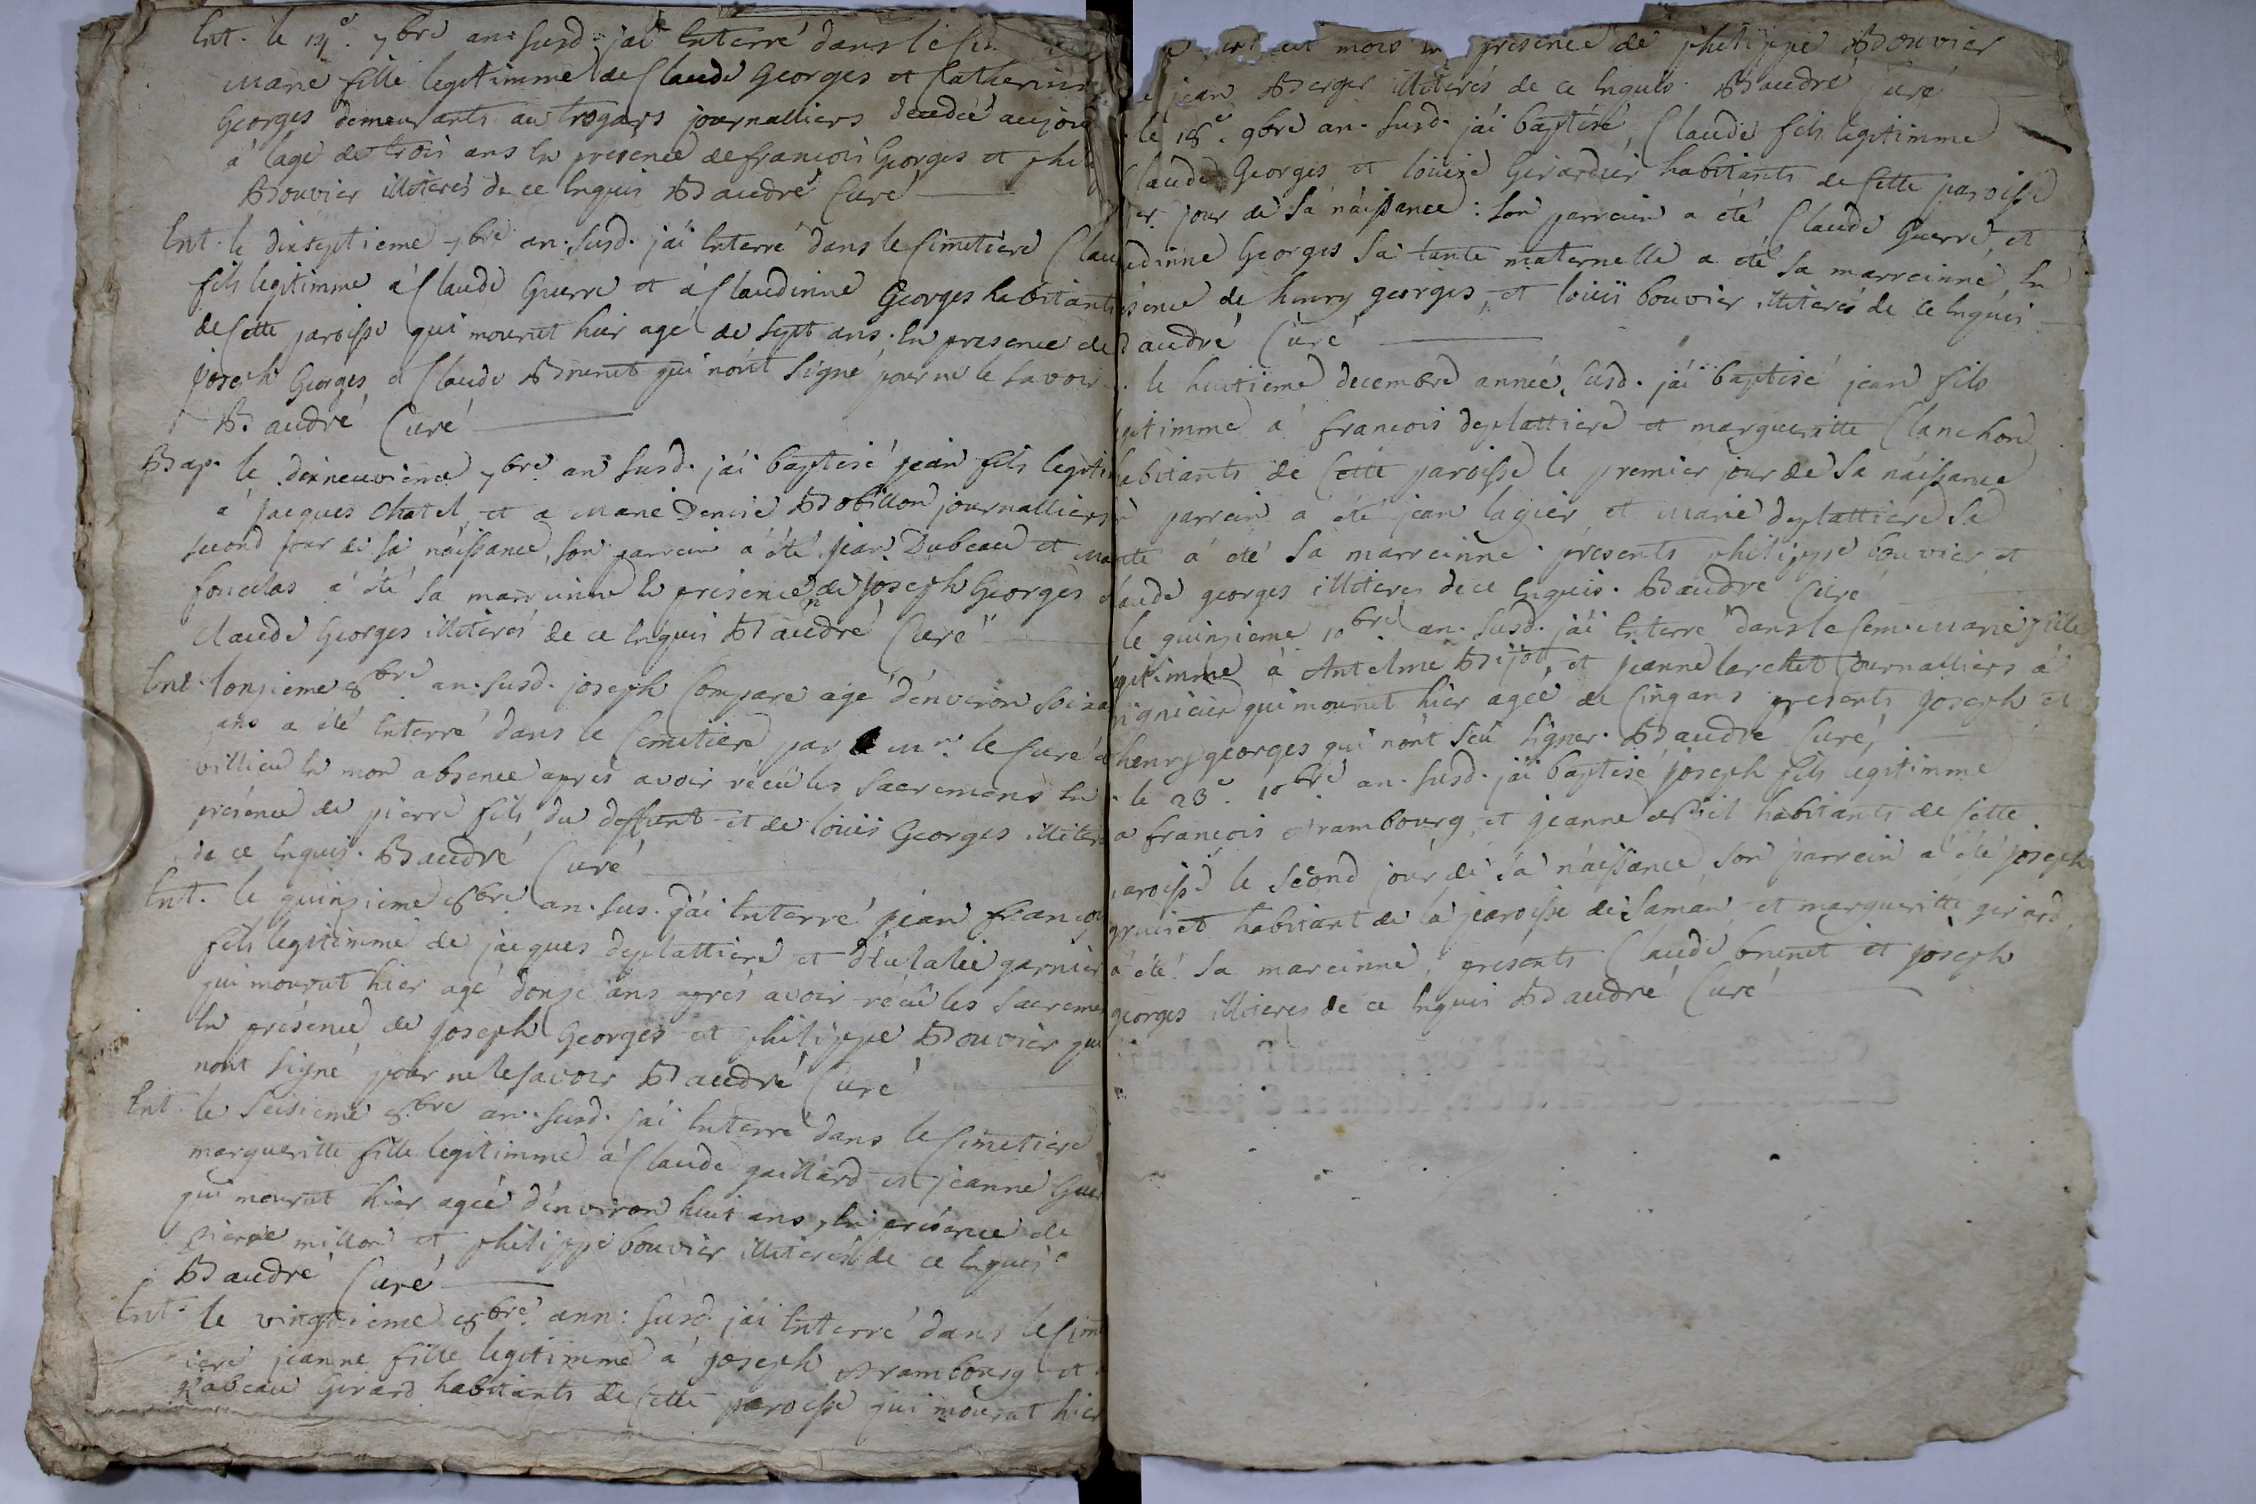 Ent. le 14e. 7bre an. susd. jai Enterré dans le
marie fille legitimme de Claude Georges et Catherine
Georges demeurants au trogars journalliers
à l'age de trois ans En presence de francois Georges et
Bouvier illiterés de ce Enquis Baudré Curé
Ent. le dixseptieme 7bre an. susd. jai Enterré dans le Cimetiere
fils legitimme à Claude Guerre et à Claudinne Georges habitants
de Cette paroisse qui mourut hier agé de sept ans. En presence de
joseph Georges et Claude Brunet qui nont signé pour ne le savoir
Baudré Curé
Bap. le dixneuvieme 7bre an susd. jai baptisé jean fils legiti
à jacques Chatel et a marie Denise Bobillon journalliers
second jour de sa naissance, son parrein a été jean Dubeau et
a été sa marreinne En presence de joseph Georges
Claude Georges illiterés de ce Enquis Baudré Curé
Ent. lonzieme 8bre an. susd. joseph Compare agé denviron soixa
ans a été Enterré dans le Cemitiere par Mr. le Curé
villieu En mon absence apres avoir récû les sacremens En
présence de pierre fils du deffunt et de loüis Georges illiteré
de ce Enquis. Baudré Curé
Ent. le quinzieme 8bre an. sus. jai Enterré jean françoi
fils legitimme de jacques deplattiere et d'Eulalie garnier
qui mourut hier agé donze ans après avoir récû les sacreme
En présence de joseph Georges et philippe Bouvier qui
nont signé pour ne le savoir Baudré Curé
Ent. le seisieme 8bre an. susd. jai Enterré dans le Cimetiere
margueritte fille legitimme à Claude gaillard et jeanne
qui mourut hier agée d'environ huit ans, En présence de
pierre millon et philippe bouvier illiterés de ce Enquis
Baudré Curé
Ent. le vingtieme 8bre ann: susd. jai Enterré dans le Cime
iere jeanne fille legitimme à joseph Brambourg et
Girard habitants de Cette paroisse qui mourut hier
mois En présence de philippe Bouvier
jean Berger illiterés de ce Enquis. Baudré Curé
le 18e. 9bre an. susd. jai baptisé, Claude fils legitimme
Claude Georges et loüise Girardier habitants de Cette paroisse
jour de sa naissance: son parrein a été Claude Guerre, et
dinne Georges sa tante maternelle a été sa marreinne, En
sence de henry georges, et loüis bouvier illiterés de ce Enquis
audré Curé
le huitieme decembre année susd. jai baptisé jean fils
gitimme à francois deplattiere et margueritte Clanchon
habitants de Cette paroisse le premier jour de sa naissance
parrein a été jean lagier et marie deplattiere sa
a été sa marreinne. presents philippe bouvier et
laude georges illiteres de ce Enquis. Baudré Curé
le quinzieme 10bre an. susd. jai Enterré dans le Cem. marie fille
egitimme à Antelme Bijot, et jeanne larchet journalliers à
qui mourut hier agée de Cinq ans presents joseph et
henry georges qui nont seu signer. Baudré Curé,
le 23e. 10bre an. susd. jai baptisé joseph fils legitimme
a françois Brambourg et jeanne habitants de Cette
paroisse le second jour de sa naissance, son parrein a été joseph
gruiset habitant de la paroisse de Saman et margueritte girard
a été sa mareinne, presents Claude brunet et joseph
georges illiteres de ce Enquis Baudré Curé